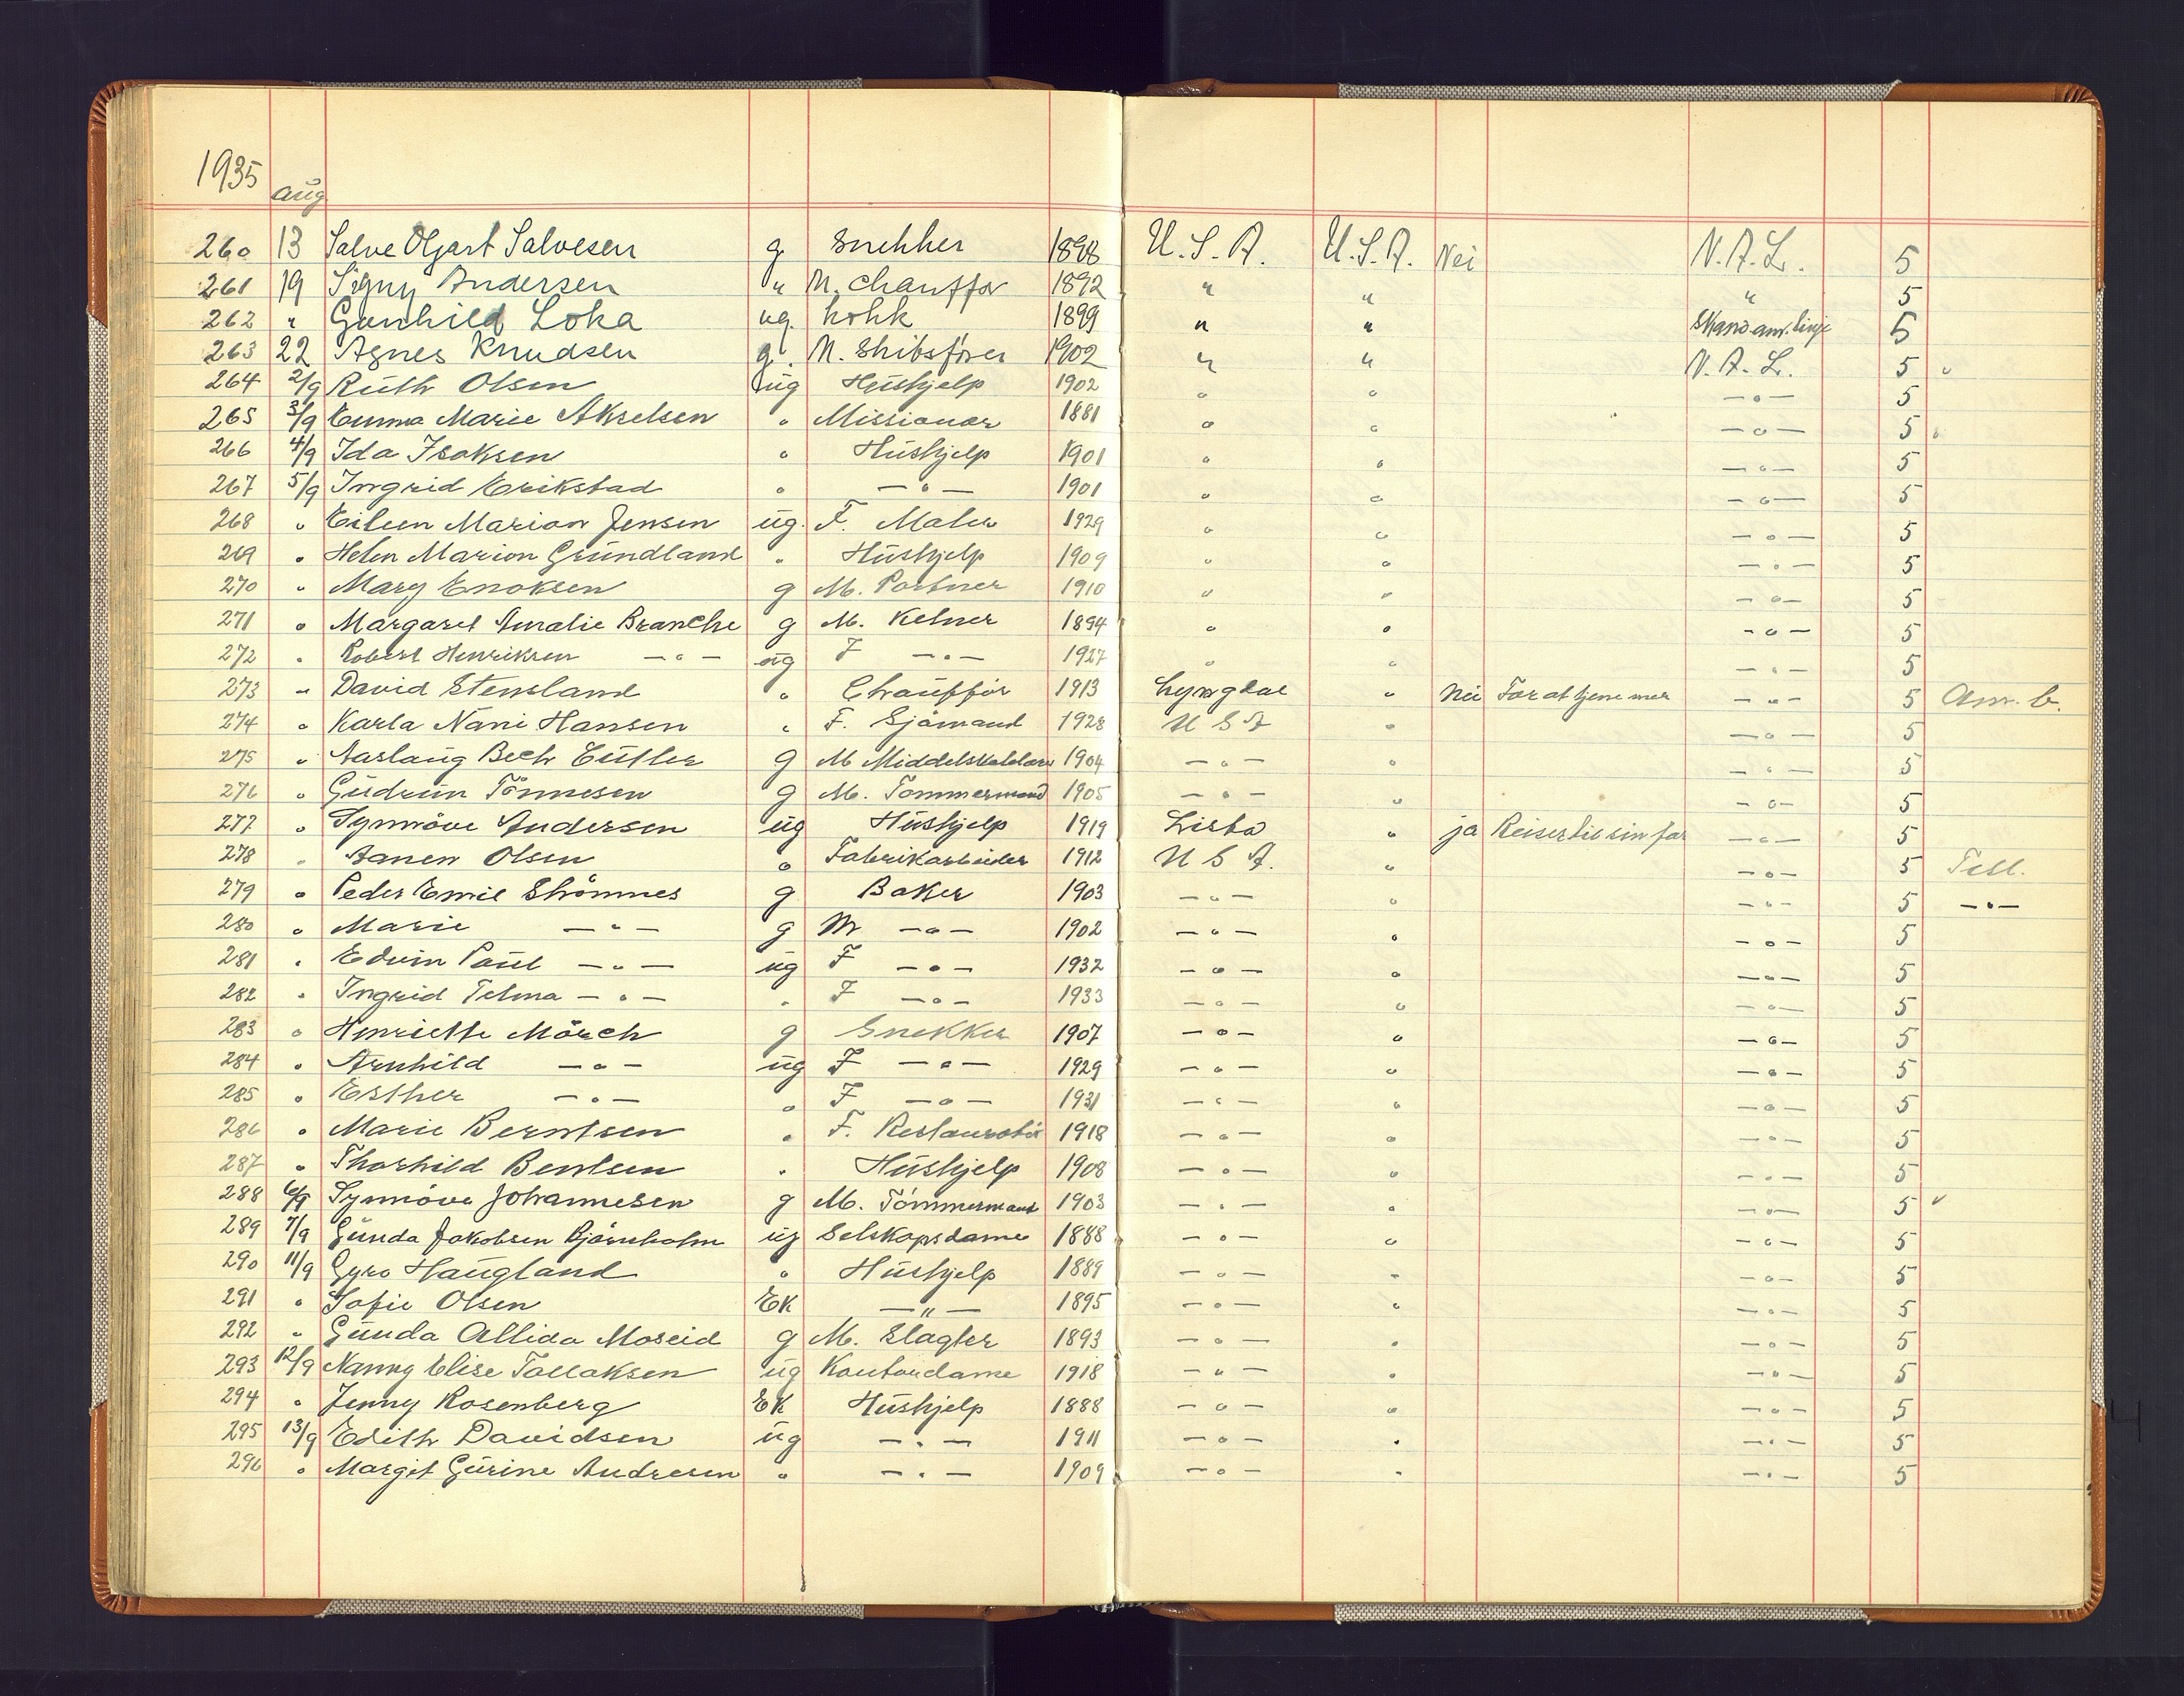 1935 aug
260 13 Salve Olgart Salvesen g Snekker 1898 U.S.A. U.S.A. Nei N.A.L. 5
261 19 Signy Andersen " M. Chauffør 1892 " " " 5
262 " Gunhild Loka ug. kokk 1899 " " Skand.am.linje 5
263 22 Agnes Knudsen g. M. Skibsfører 1902 " " N.A.L. 5 "
264 2/9 Ruth Olsen ug Hushjelp 1902 " " —"— 5
265 3/9 Emma Marie Akselsen " Missionær 1881 " " —"— 5 "
266 4/9 Ida Isaksen " Hushjelp 1901 " " —"— 5
267 5/9 Ingrid Erikstad " —"— 1901 " " —"— 5
268 " Eileen Marion Jensen ug. F. Maler 1929 " " —"— 5
269 " Helen Marion Grundland " Hushjelp 1909 " " —"— 5
270 " Mary Enoksen g M. Portner 1910 " " —"— 5
271 " Margaret Amalie Branche g M. Kelner 1894 " " —"— 5
272 " Robert Henriksen —"— ug F —"— 1927 " " —"— 5
273 " David Stensland " Chauffør 1913 Lyngdal " Nei For at tjene mer —"— 5 Am. b.
274 " Karla Nani Hansen " F. Sjømand 1928 U S A " —"— 5
275 " Aaslaug Bech Cutler g M 1904 —"— " —"— 5
276 " Gudrun Tönnesen g M. Tømmermand 1905 —"— " —"— 5
277 " Synnöve Andersen ug Hushjelp 1919 Lista " ja Reiser til sin far —"— 5
278 " Aanen Olsen " Fabrikarbeider 1912 U S A. " —"— 5 Tell.
279 " Peder Emil Strömnes g Baker 1903 —"— " —"— 5 —"—
280 " Marie —"— g M —"— 1902 —"— " —"— 5
281 " Edvin Paul —"— ug F —"— 1932 —"— " —"— 5
282 " Ingrid Telma —"— " F —"— 1933 —"— " —"— 5
283 " Henriette Mörch g Snekker 1907 —"— " —"— 5
284 " Arnhild —"— ug F —"— 1929 —"— " —"— 5
285 " Esther —"— " F —"— 1931 —"— " —"— 5
286 " Marie Berntsen " F. Restauratör 1918 —"— " —"— 5
287 " Thorhild Bentsen " Hushjelp 1908 —"— " —"— 5
288 6/9 Synnöve Johannesen g M. Tömmermand 1903 —"— " —"— 5 "
289 7/9 Gunda Jakobsen Bjørnholm ug Selskapsdame 1888 —"— " —"— 5
290 11/9 Gyro Haugland " Hushjelp 1889 —"— " —"— 5
291 " Sofie Olsen Ek —"— 1895 —"— " —"— 5
292 " Gunda Allida Moseid g M. Slagter 1893 —"— " —"— 5
293 12/9 Nanny Elise Tallaksen ug Kontordame 1918 —"— " —"— 5
294 " Jenny Rosenberg Ek Hushjelp 1888 —"— " —"— 5
295 13/9 Edith Davidsen ug —"— 1911 —"— " —"— 5
296 " Margit Gurine Andresen " —"— 1909 —"— " —"— 5